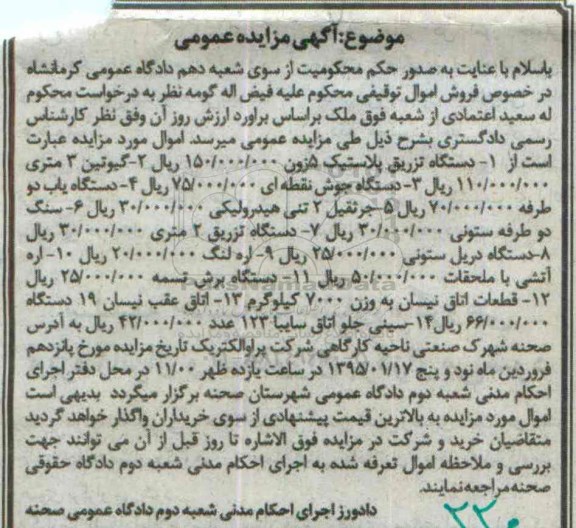 موضوع:آگهی مزایده عمومی
باسلام با عنایت به صدور حکم محکومیت از سوی شعبه دهم دادگاه عمومی کرمانشاه
در خصوص فروش اموال توقیفی محکوم علیه فیض اله گومه نظر به درخواست محکوم
له سعید اعتمادی از شعبه فوق ملک براساس براورد ارزش روز آن وفق نظر کارشناس
رسمی دادگستری بشرح ذیل طی مزایده عمومی میرسد. اموال مورد مزایده عبارت
است از ۱- دستگاه تزریق پلاستیک ۱۵۰/۰۰۰/۰۰۰ ریال ۲-گیوتین ۳ متری
۱۱۰/۰۰۰/۰۰۰ ریال ۳-دستگاه جوش نقطه ای ۷۵/۰۰۰/۰۰۰ ریال ۴-دستگاه یاب دو
طرفه ۷۰/۰۰۰/۰۰۰ ریال ۵-جرثقیل ۲ تنی هیدرولیکی ۳۰/۰۰۰/۰۰۰ ریال ۶-سنگ
دو طرفه ستونی ۳۰/۰۰۰/۰۰۰ ریال ۷- دستگاه تزریق ۲ متری ۳۰/۰۰۰/۰۰۰ ریال
۸-دستگاه دریل ستونی ۲۵/۰۰۰/۰۰۰ ریال ۹-اره لنگ ۲۰/۰۰۰/۰۰۰ ریال ۱۰-اره
آتشی با ملحقات ۵۰/۰۰۰/۰۰۰ ریال ۱۱- دستگاه برش تسمه ۲۵/۰۰۰/۰۰۰ ریال
۱۲- قطعات اتاق نیسان به وزن ۷۰۰۰ کیلوگرم ۱۳- اتاق عقب نیسان ۱۹ دستگاه
۶۶/۰۰۰/۰۰۰ ریال۱۴-سینی جلو اتاق سایپا ۱۲۳ عدد ۴۲/۰۰۰/۰۰۰ ریال به آدرس
صحنه شهرک صنعتی ناحیه کارگاهی شرکت پراوالکتریک تاریخ مزایده مورخ پانزدهم
فروردین ماه نود و پنج ۱۳۹۵/۰۱/۱۷ در ساعت یازده ظهر ۱۱/۰۰ در محل دفتر اجرای
احکام مدنی شعبه دوم دادگاه عمومی شهرستان صحنه برگزار میگردد بدیهی است
اموال مورد مزایده به بالاترین قیمت پیشنهادی از سوی خریداران واگذار خواهد گردید
متقاضیان خرید و شرکت در مزایده فوق الاشاره تا روز قبل از آن می توانند جهت
بررسی و ملاحظه اموال تعرفه شده به اجرای احکام مدنی شعبه دوم دادگاه حقوقی
صحنه مراجعه نمایند.
دادورز اجرای احکام مدنی شعبه دوم دادگاه عمومی صحنه